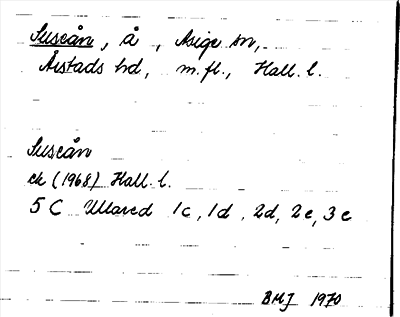 Suseån, å, Asige sn,
Årstads hd, m.fl., Hall. l.
Suseån
ek (1968) Hall. l.
5 C Ullared 1c, 1d, 2d, 2e, 3e
BMJ 1970